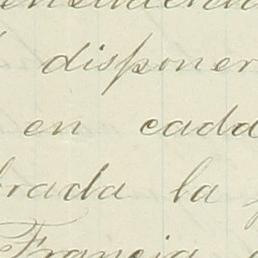 disponer
en cada
brada la
Francia